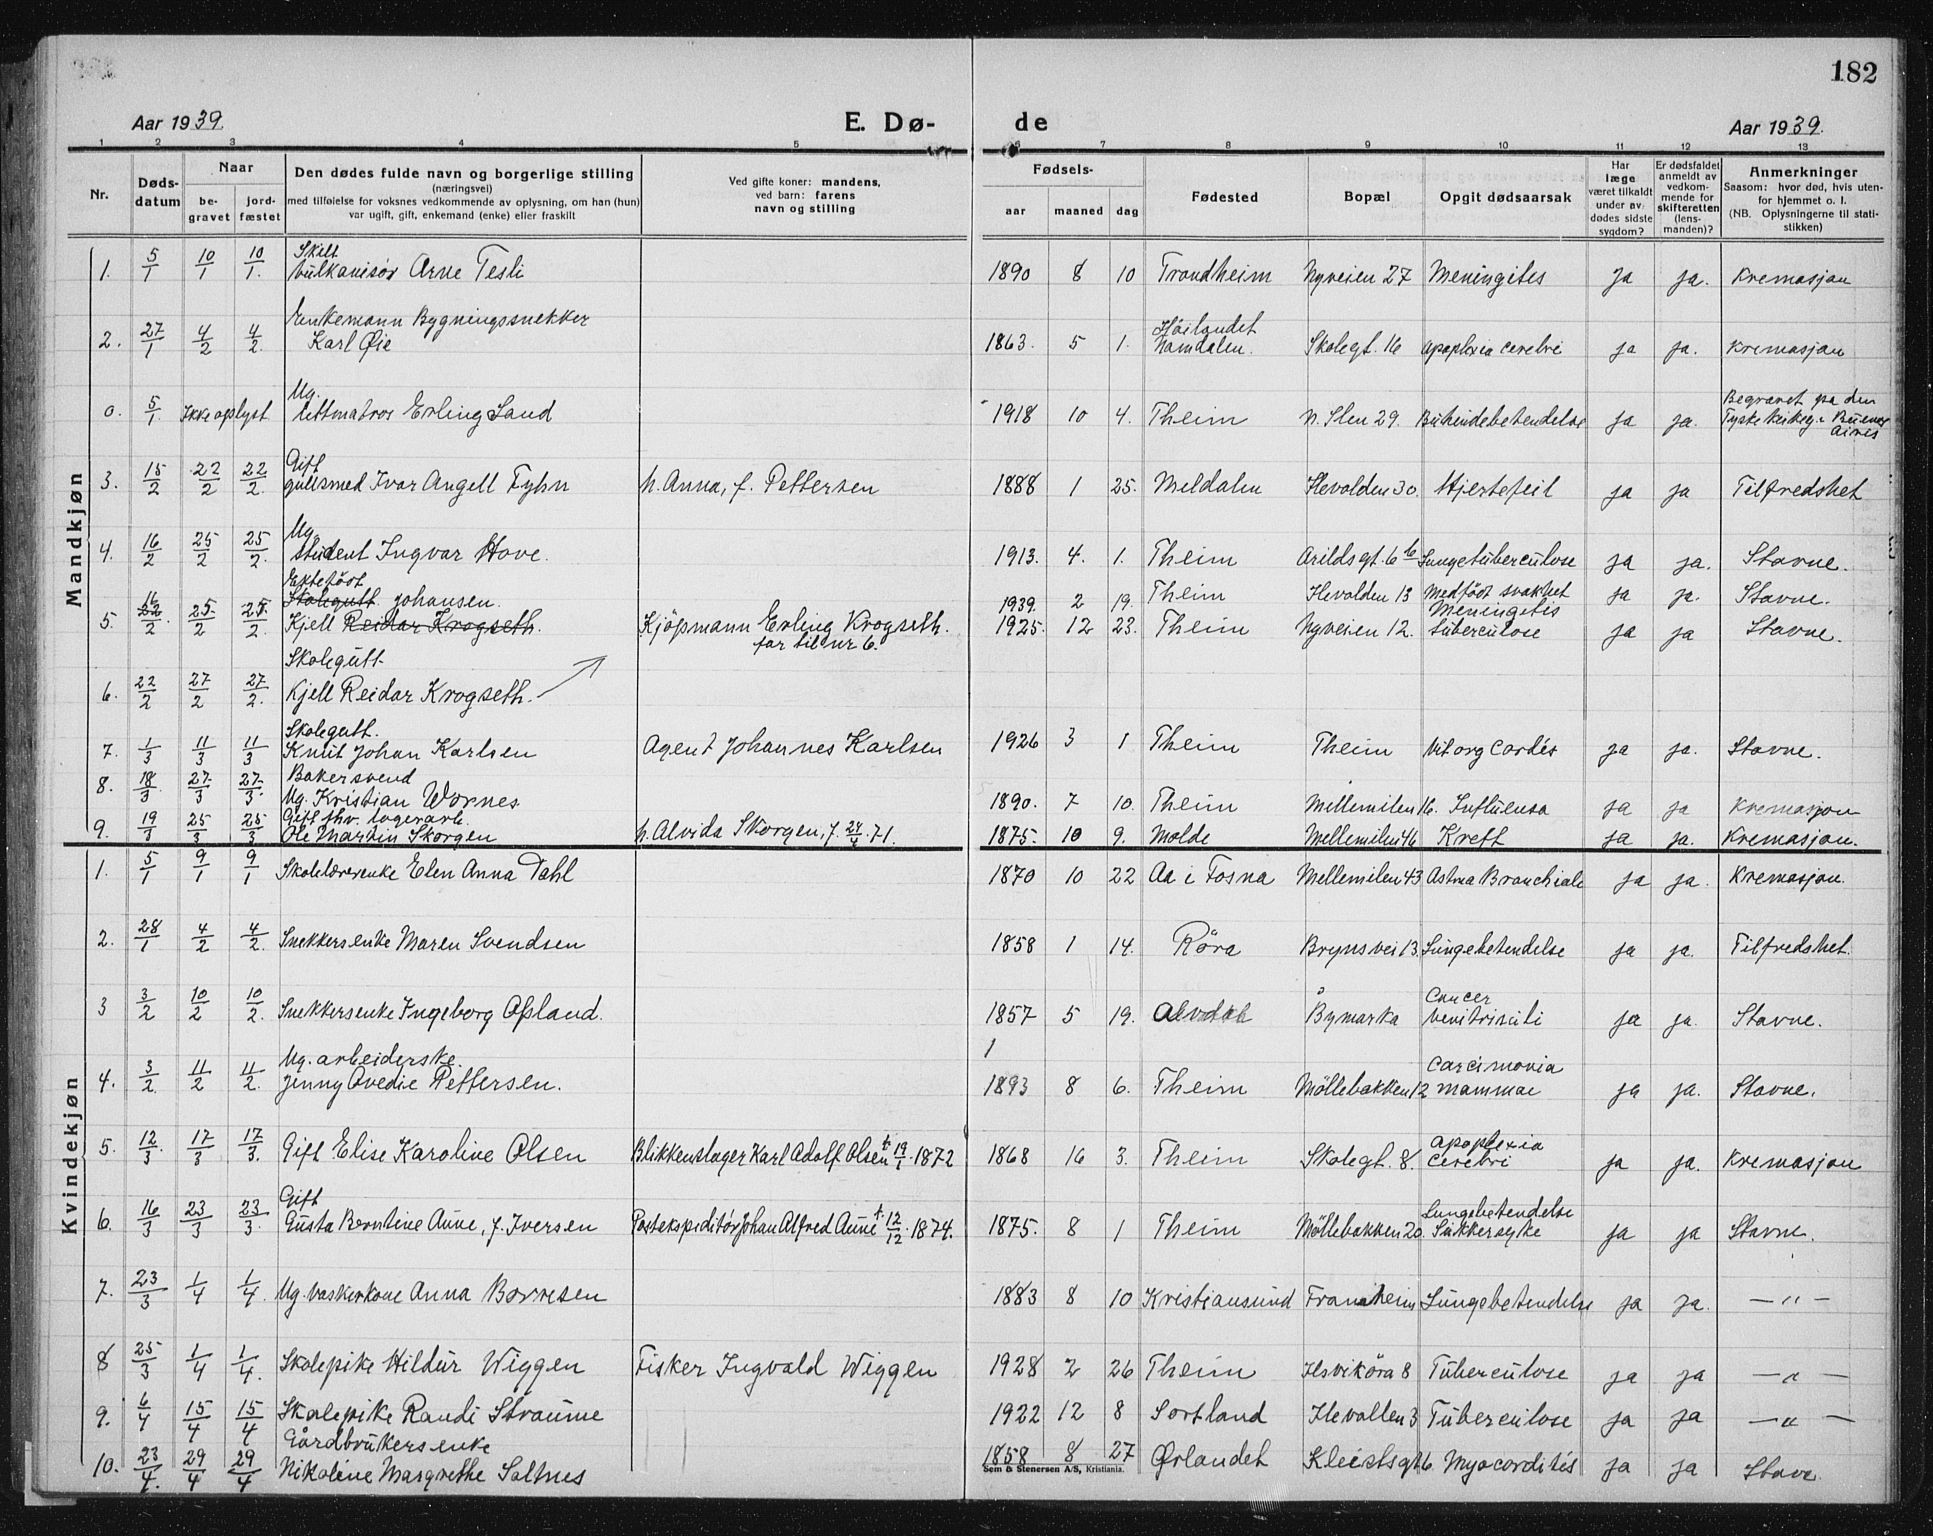 182
Aar 1939.
E. Dø-
de
Aar 1939.
1 2 3 4 5 6 7 8 9 10 11 12 13
Nr.
Døds-
datum
Naar
be-
gravet
jord-
fæstet
Den dødes fulde navn og borgerlige stilling
(næringsvei)
med tilføielse for voksnes vedkommende av oplysning, om han (hun)
var ugift, gift, enkemand (enke) eller fraskilt
Ved gifte koner: mandens,
ved barn: farens
navn og stilling
Fødsels-
aar
maaned
dag
Fødested
Bopæl
Opgit dødsaarsak
Har
læge
været tilkaldt
under av-
dødes sidste
sygdom?
Er dødsfaldet
anmeldt av
vedkom-
mende for
skifteretten
(lens-
manden)?
Anmerkninger
Saasom: hvor død, hvis uten-
for hjemmet o. l.
(NB. Oplysningerne til stati-
stikken)
Mandkjøn
Skilt
1. 5/1 10/1 10/1. Vulkanisør Arne Tesli 1890 8 10 Trondheim Nyveien 27 Meningites ja ja. Kremasjon
Enkemann Bygningssnekker
2. 27/1 4/2 4/2. Karl Øie 1863. 5 1. Høilandet Namdalen. Skolegt. 16 Apoplexia cerebri ja ja. Kremasjon
Ug.
0. 5/1. Ikke oplyst. lettmatros Erling Sand 1918 10 4. Theim N. Ilen 29. Bukhindebetendelse ja ja. Begravet på den Tyske kirkeg. i Buenos Aires
Gift
3. 15/2 22/2 22/2. gullsmed Ivar Angell Tyhn h. Anna, f. Pettersen 1888 1 25. Meldalen Ilevolden 30. Hjertefeil ja ja Tilfredshet
Ug.
4. 16/2 25/2 25/2. student Ingvar Hove. 1913. 4. 1. Theim Arildsgt. 6 b Lungetuberculose ja ja. Stavne.
Ektefödt
Skolegutt Johansen. 1939. 2 19. Theim Ilevolden 13 Medfödt svakhet ja ja. Stavne.
5. 16 22/2. 25/2 25/2. Kjell Reidar Krogseth. Kjöpmann Erling Krogseth. 1925. 12 23. Theim Nyveien 12. Meningetis tuberculose ja ja Stavne.
far til nr 6.
Skolegutt
6. 22/2 27/2 27/2. Kjell Reidar Krogseth.
Skolegutt.
7. 1/3 11/3 11/3 Knut Johan Karlsen Agent Johannes Karlsen 1926 3 1 Theim Theim Vit org cordis ja ja. Stavne.
Bakersvend
8. 18/3. 27/3 27/3. Ug. Kristian Wornes 1890. 7 10. Theim Mellemilen 16. Influensa ja ja Kremasjon
Gift fhv. lagerarb.
9. 19/3 25/3 25/3 Ole Martin Skorgen h. Alvida Skorgen, f. 24/4.71. 1875. 10 9. Molde Mellemilen 46 Kreft ja ja. Kremasjon.
Kvindekjøn
1. 5/1 9/1 9/1 Skolelærerenke Elen Anna Dahl 1870 10 22 Aa i Fosna Mellemilen 43 Astma Bronchiale ja ja. Kremasjon.
2. 28/1 4/2 4/2. Snekkersenke Maren Svendsen 1858 1 14. Röra Brynsvei 13. Lungebetendelse ja ja. Tilfredshet.
3 3/2 10/2 10/2. Snekkersenke Ingeborg Opland. 1857 5 19. Alvdal Bymarka Cancer ventriculi ja ja. Stavne.
Ug. arbeiderske.
4. 3/2. 11/2 11/2. Jenny Ovedie Pettersen. 1893 8 6. Theim Möllebakken 12 Carcimonia mammae ja ja. Stavne.
5. 12/3. 17/3 17/3. Gift Elise Karoline Olsen Blikkenslager Karl Adolf Olsen f. 19/1.1872 1868 16 3. Theim Skolegt. 8. Apoplexia Cerebri ja ja. Kremasjon
Gift
6. 16/3 23/3 23/3. Gusta Berntine Aune, f. Iversen Postekspeditør Johan Alfred Aune f. 12/12.1874. 1875. 8 1 Theim Möllebakken 20. Lungebetendelse Sukkersyke ja ja Stavne.
7. 23/3 1/4 1/4. Ug. vaskerkone Anna Borresen 1883 8 10 Kristiansund Franzheim Lungebetendelse ja ja. — " —
8 25/3 1/4 1/4. Skolepike Hildur Wiggen Fisker Ingvald Wiggen 1928 2 26 Theim Ilsviköra 8 Tuberculose ja ja — " —
9. 6/4 15/4 15/4 Skolepike Randi Straume 1922 12 8 Sortland Ilevollen 3 Tuberculose ja ja — " —
Gårdbrukersenke
10. 23/4. 29/4 29/4 Nikoline Margrethe Saltnes 1858 8 27 Ørlandet Kleistsgt 6. Myocorditis ja ja Stavne.
Sem & Stenersen A/S, Kristiania.